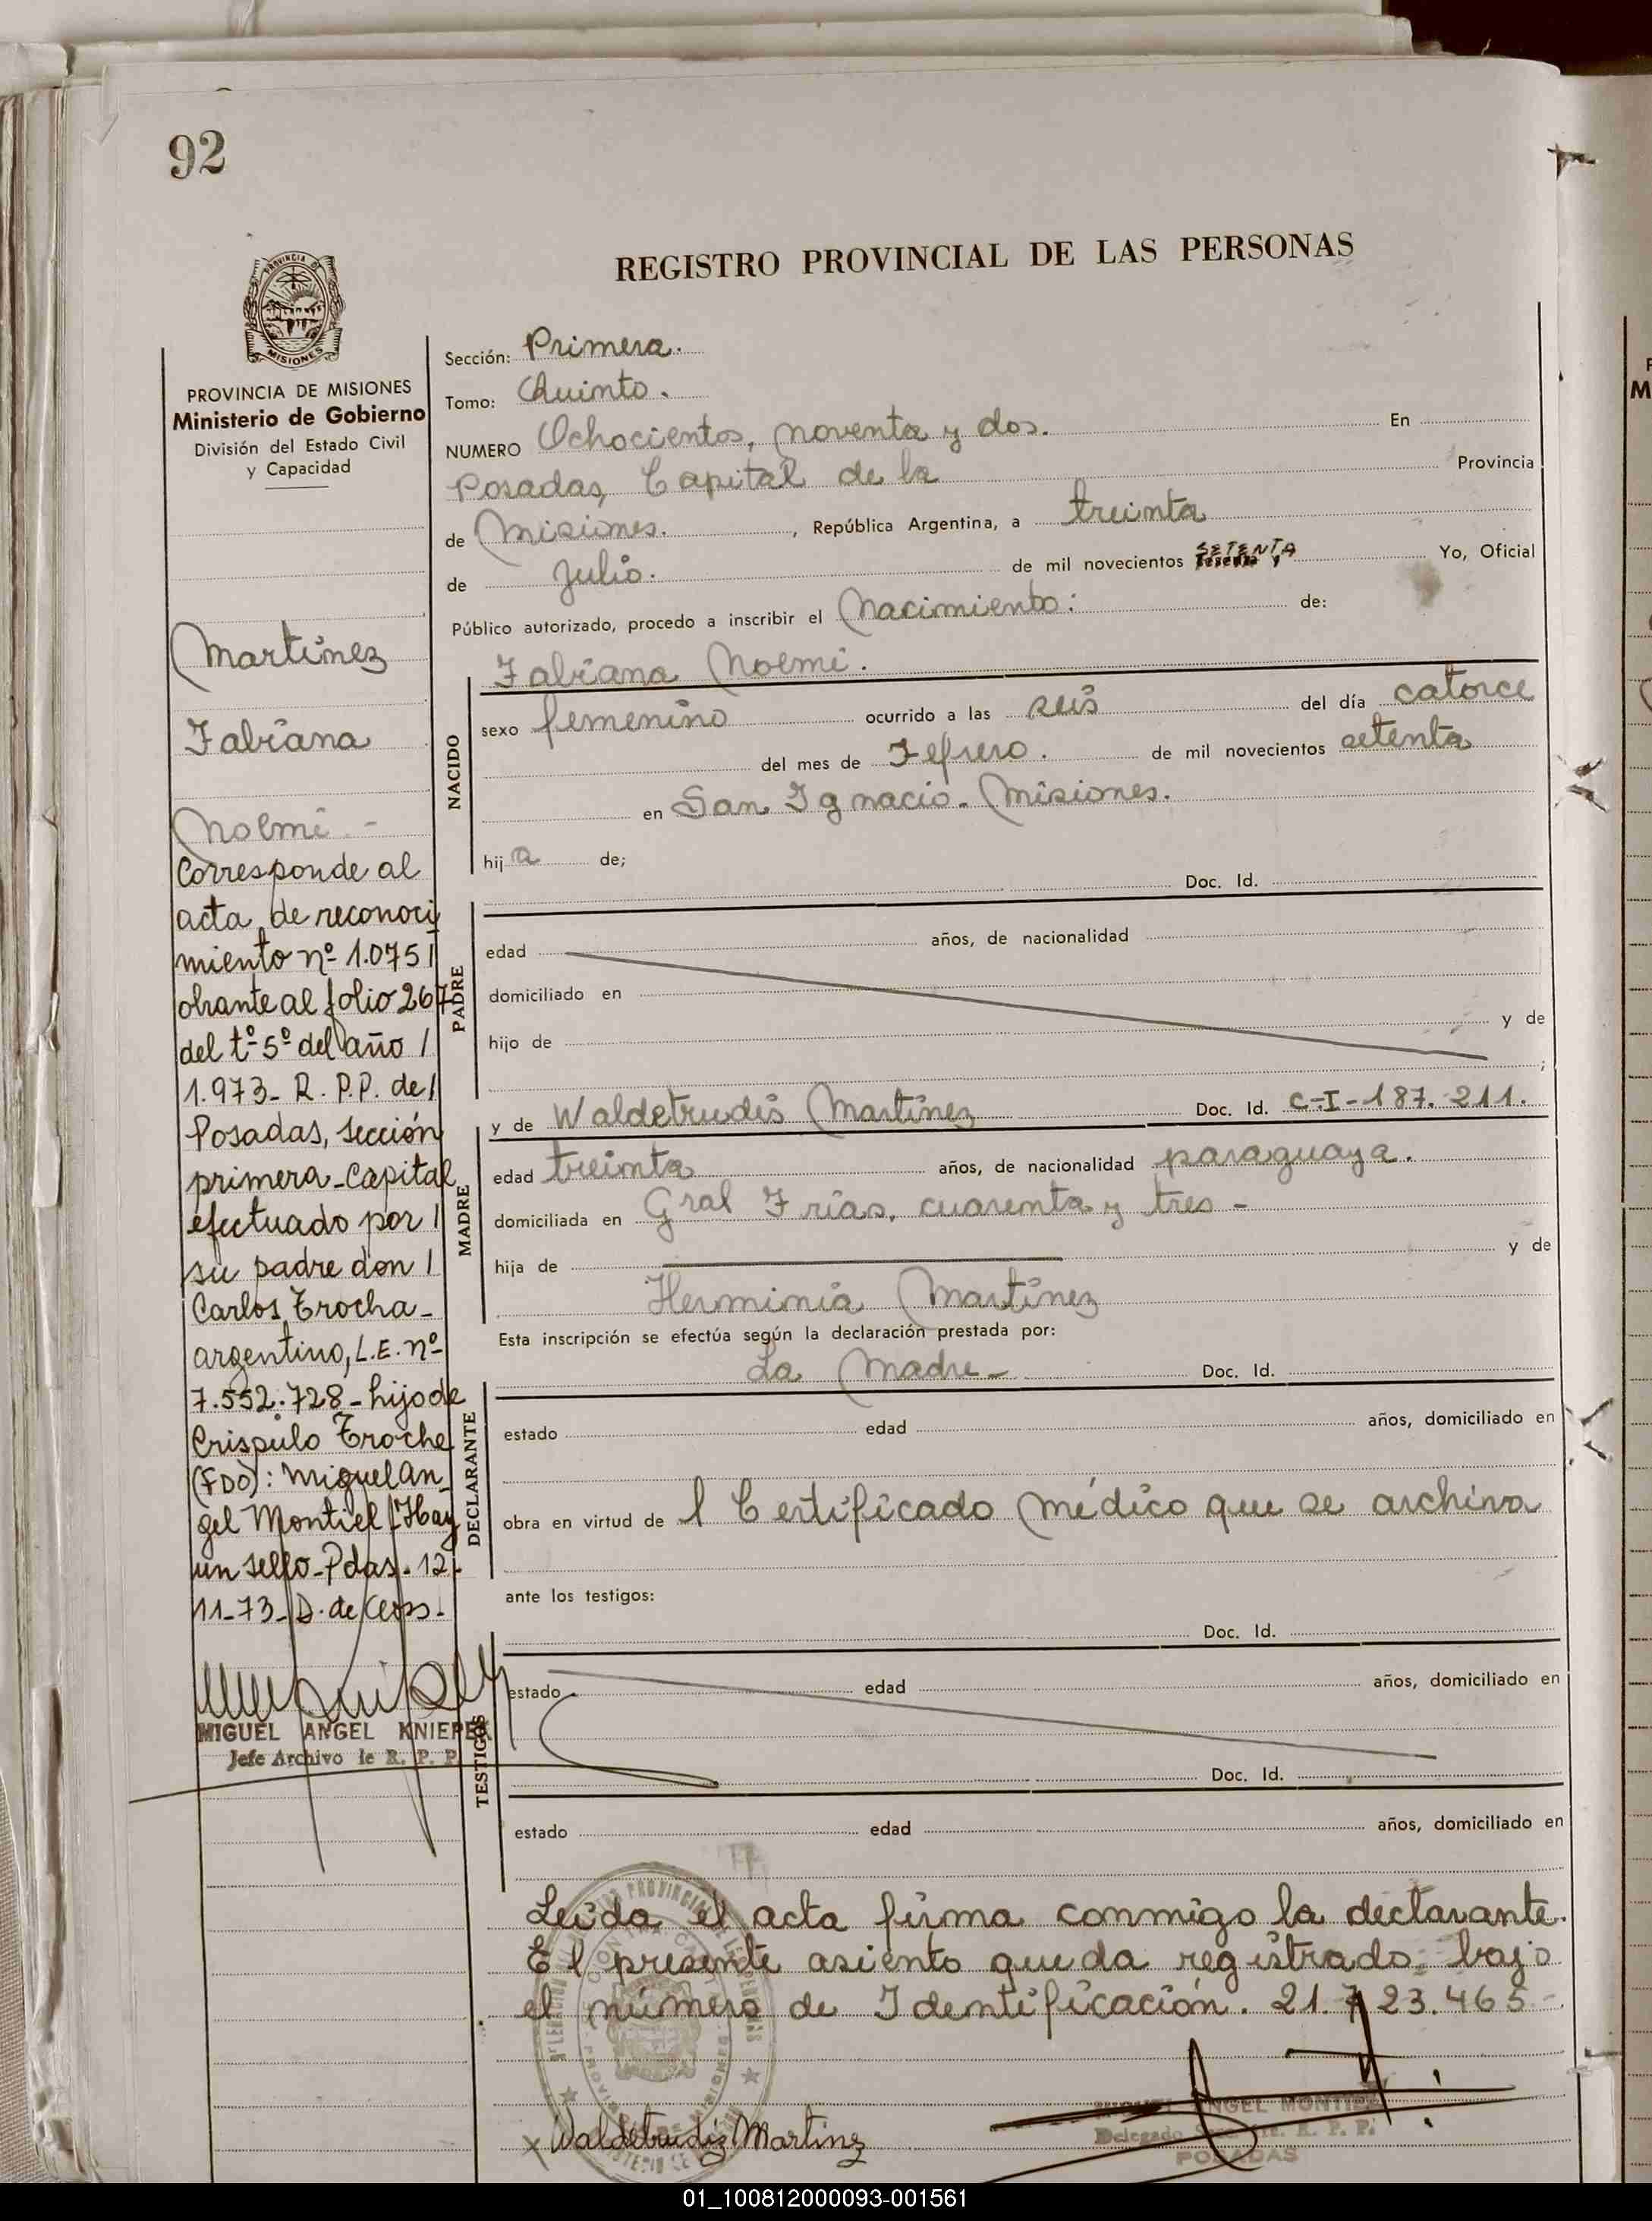 92
REGISTRO PROVINCIAL DE LAS PERSONAS
PROVINCIA DE MISIONES
Ministerio de Gobierno
División del Estado Civil
y Capacidad
Martínez
Fabiana
Noemi -
Corresponde al
acta de reconoci
miento nº 1.075/
obrante al folio 267
del tº 5º del año /
1.973- R. P.P. de/
Posadas, sección
primera-Capital
efectuado por /
su padre don /
Carlos Trocha-
argentino, L.E. nº
7.552.728- hijo de
Crispulo Troche
(FDO): Miguel An_
gel Montiel /Hay
un sello-Pdas. 12-
11-73-
MIGUEL ANGEL KNIEPER
Jefe Archivo de R. P. P.
Sección: Primera.
Tomo: Quinto.
NUMERO Ochocientos, noventa y dos. En
Posadas, Capital de la Provincia
de Misiones. , República Argentina, a treinta
de Julio. de mil novecientos SETENTA Yo, Oficial
Público autorizado, procedo a inscribir el Nacimiento: de:
Fabiana Noemi.
NACIDO
sexo femenino ocurrido a las seis del día catorce
del mes de Febrero. de mil novecientos setenta
en San Ignacio. Misiones.
hij a de;
Doc. Id.
PADRE
edad años, de nacionalidad
domiciliado en
hijo de y de
;
y de Waldetrudis Martínez Doc. Id. C-I-187.211.
MADRE
edad treinta años, de nacionalidad paraguaya.
domiciliada en Gral Frías, cuarenta y tres -
hija de y de
Herminia Martínez
Esta inscripción se efectúa según la declaración prestada por:
La Madre- Doc. Id.
DECLARANTE
estado edad años, domiciliado en
obra en virtud de l Certificado Médico que se archiva
ante los testigos:
Doc. Id.
TESTIGOS
estado edad años, domiciliado en
Doc. Id.
estado edad años, domiciliado en
Leida el acta firma conmigo la declarante.
El presente asiento queda registrado bajo
el número de Identificación. 21.723.465-
x Waldetrudis Martinez
MIGUEL ANGEL MONTIEL
Delegado R. P. P.
POSADAS
01_100812000093-001561